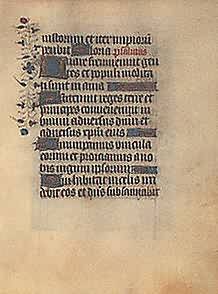 iustorum et iter impiorū
peribit Gloria psalmus
Quare fremuerunt gen
tes et populi meditati
sunt inania
Astiterunt reges terre et
principes convenerunt in
unum adversus dūm et
adversus xp̄m eius
Dirumpamus vincula
eorum et proiciamus a no
bis iugum ipsorum
Qui habitat in celis irri
debit eos et dūs subsannabit